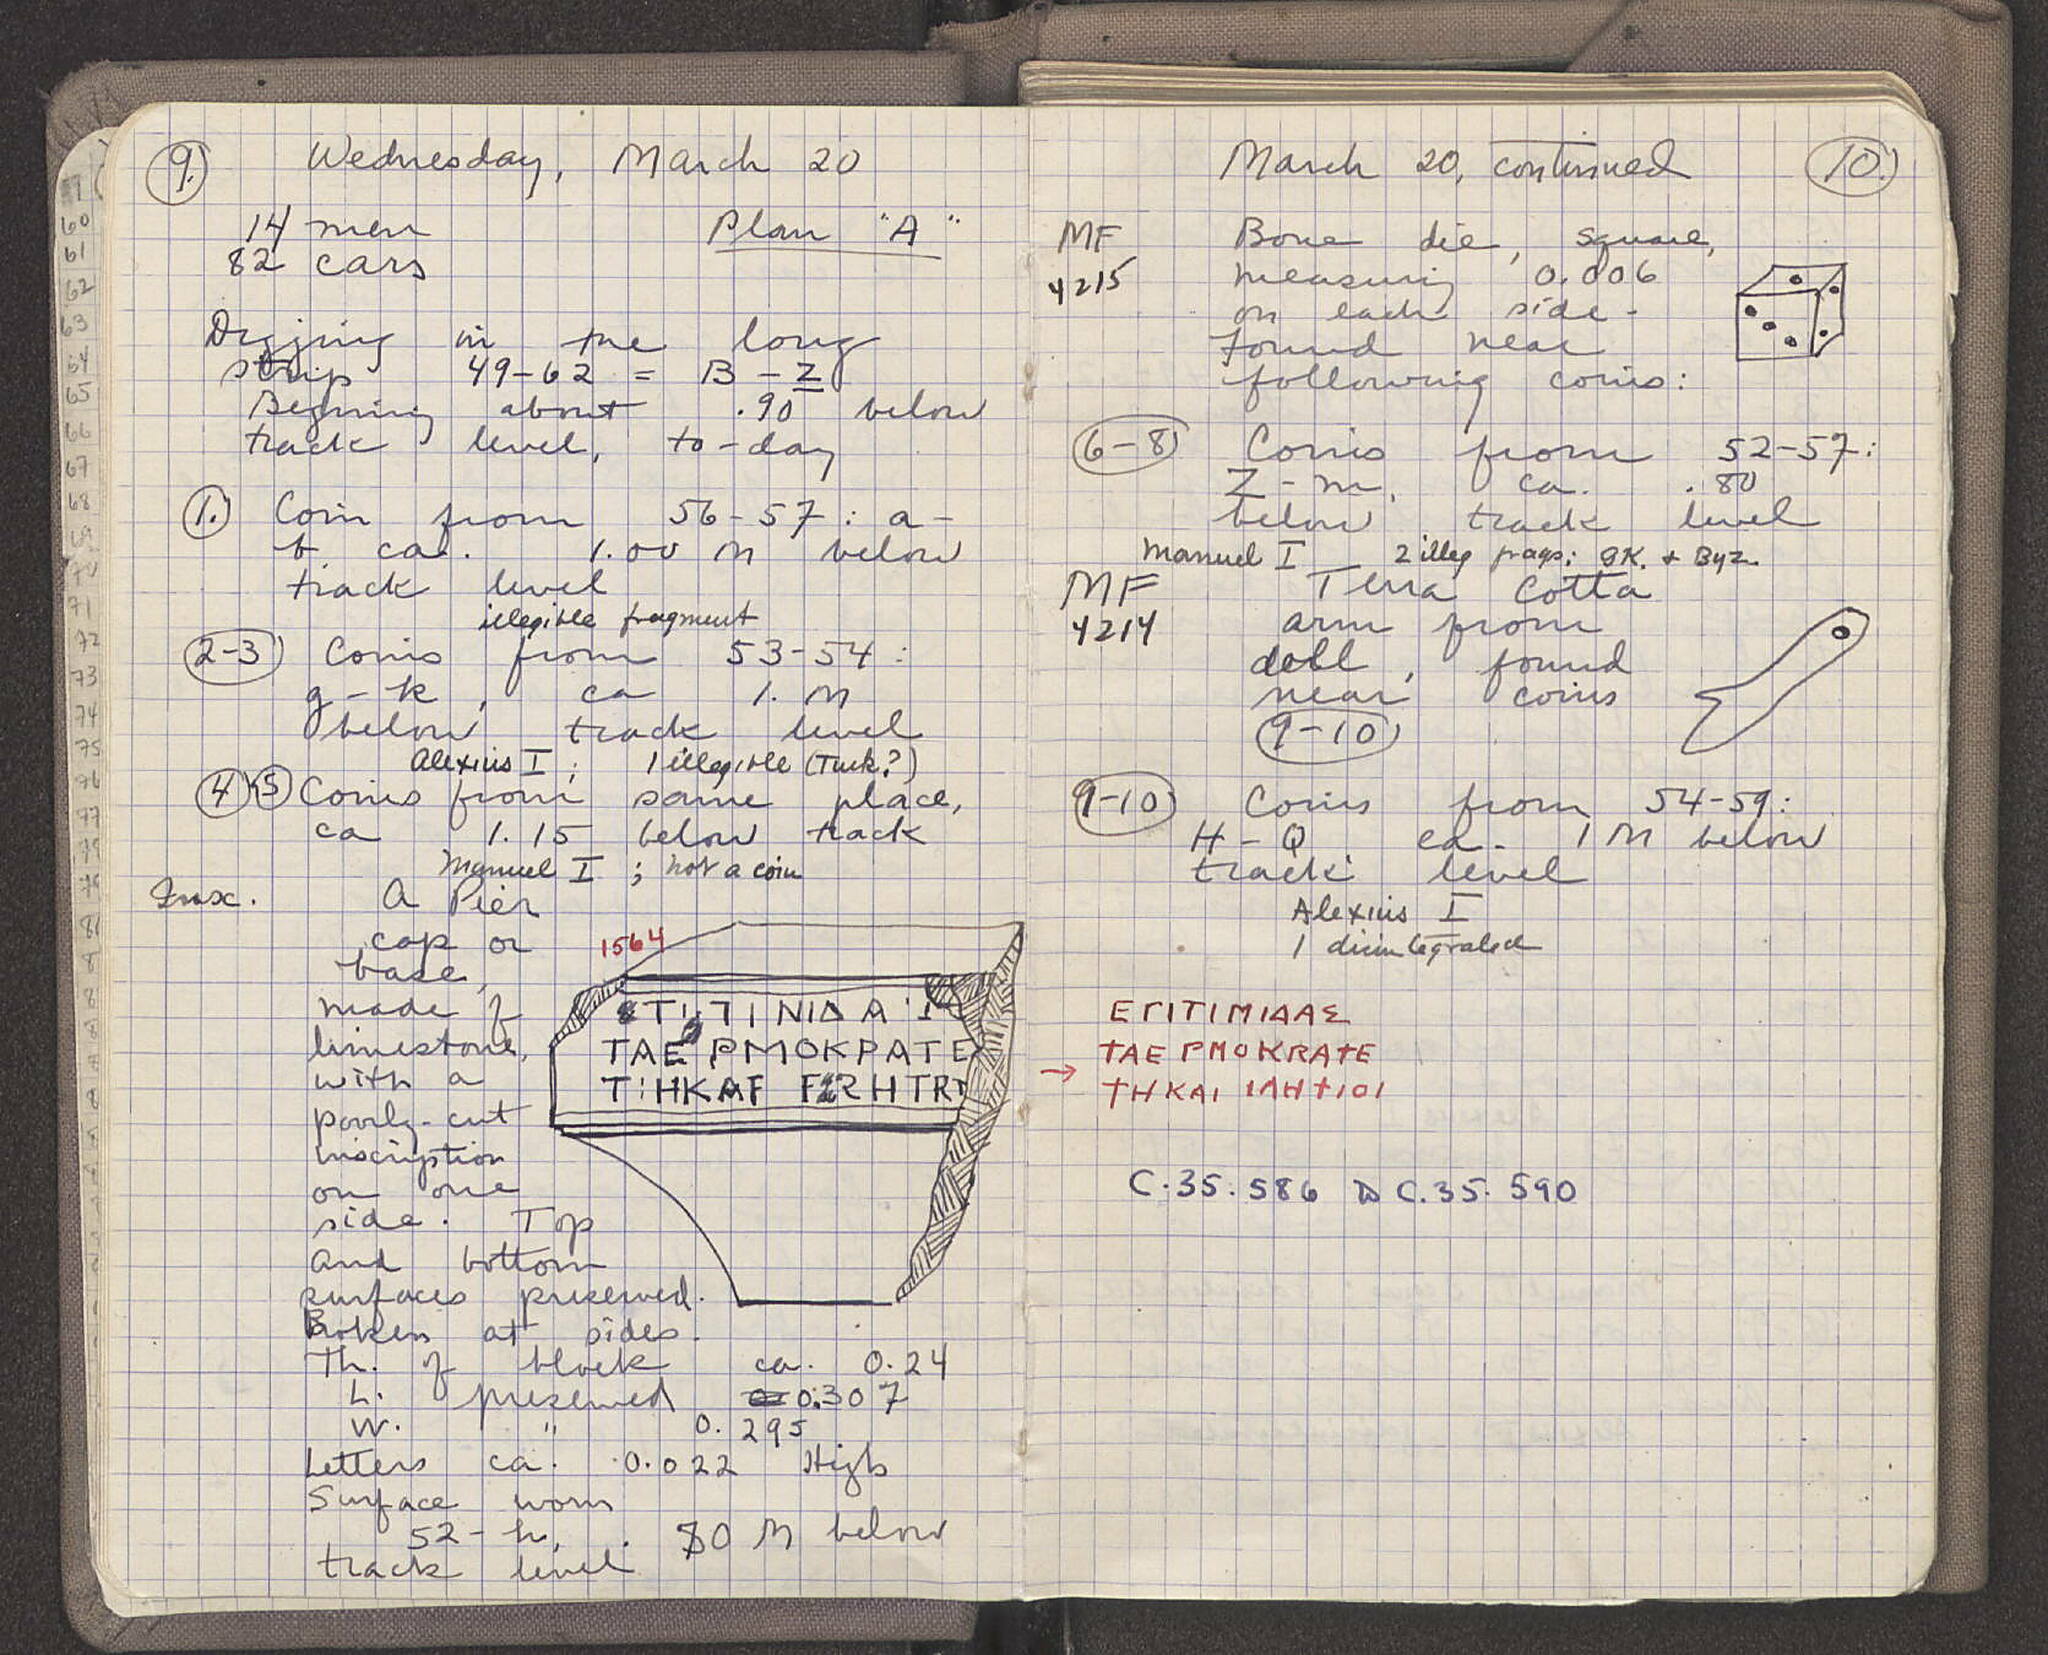 9.
Wednesday, March 20
14 men
Plan "A"
82 cars
Digging in the long
strip 49-62 = B - Z
Beginning about .90 below
track level, to-day
1. Coin from 56-57: a-
t ca. 1.00 M below
track level
illegible fragment
2-3 Coins from 53-54:
g-k, ca 1. M
below track level
Alexius I; 1 illegible (Turk?)
4 5 Coins from same place,
ca 1.15 below track
Manuel I; not a coin
Insc. A Pier
cap or
base,
made of
limestone,
with a
poorly-cut
inscription
on one
side. Top
and bottom
surfaces preserved.
Broken at sides.
Th. of block ca. 0.24
L. preserved 0.307
W. " 0.295
Letters ca. 0.022 High
Surface worn
52-h, .80 M below
track level
1564
ΤΑΕ ΡΜΟΚΡΑΤΕ
60
61
62
63
64
65
66
67
68
69
70
71
72
73
74
75
76
77
79
79
March 20, continued
10.
MF 4215
Bone die, square,
measuring 0.006
on each side.
Found near
following coins:
6-8 Coins from 52-57:
Z-m, ca. .80
below track level
Manuel I 2 illeg frags: GK. + Byz.
MF 4214
Terra Cotta
arm from
doll, found
near coins
9-10
9-10 Coins from 54-59:
H-Q ca. 1 M below
track level
Alexius I
1 disintegrated
ΕΓΙΤΙΜΙΔΑΣ
→ ΤΑΕ ΡΜΟΚRΑΤΕ
ΤΗΚΑΙ ΙΛΗΤΙΟΙ
C.35.586 C.35.590